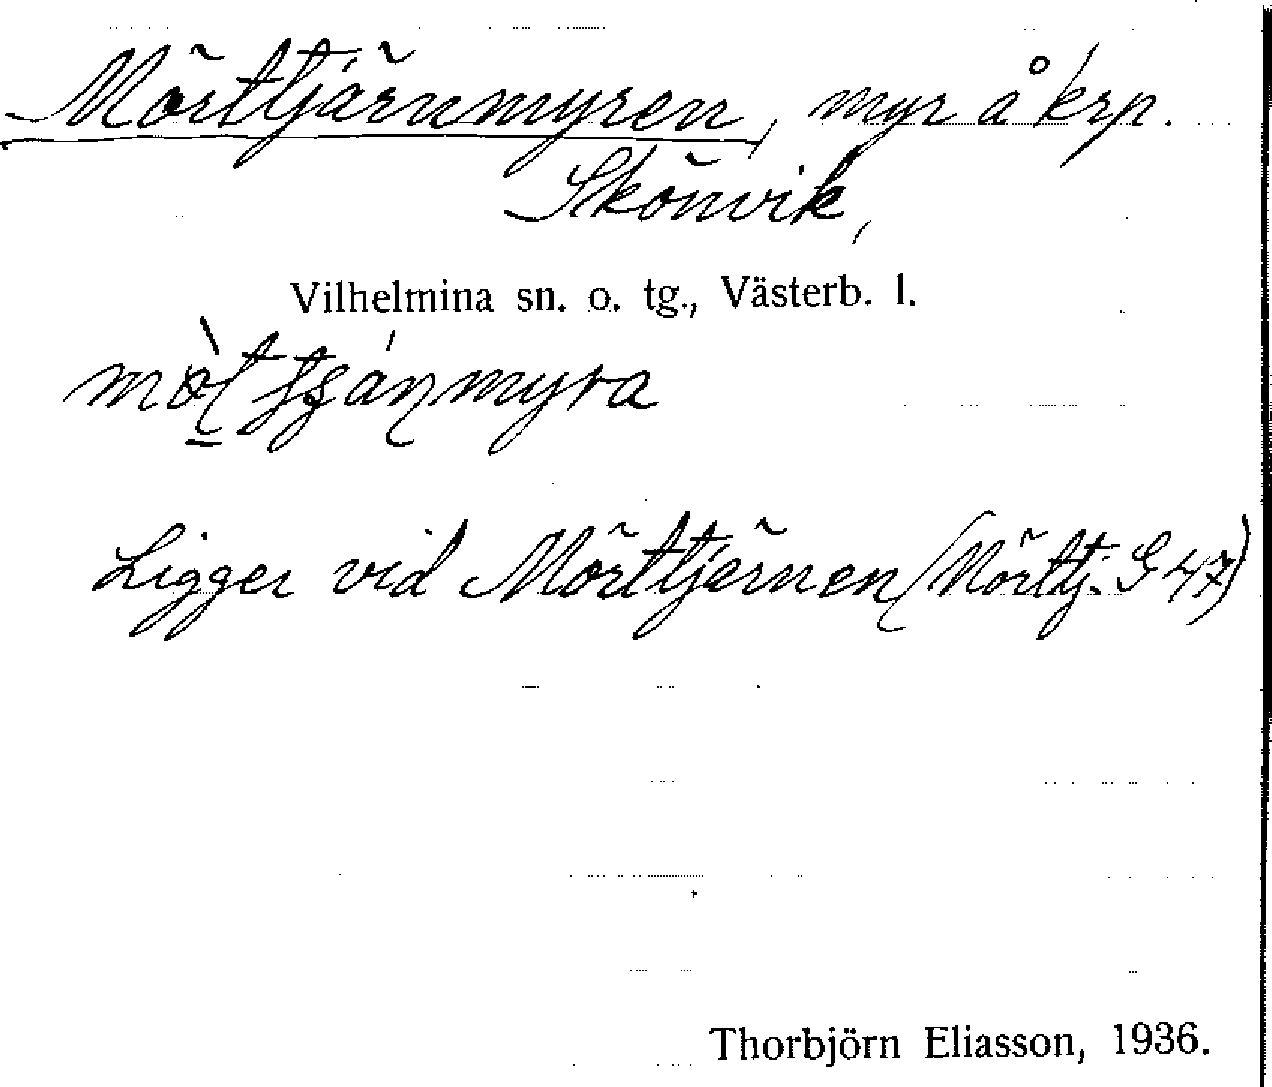 Mörttjärnmyren, myr å krp.
Skönvik,
Vilhelmina sn. o. tg., Västerb. l.
Ligger vid Mörttjärnen (Mörttj. G 47)
Thorbjörn Eliasson, 1936.